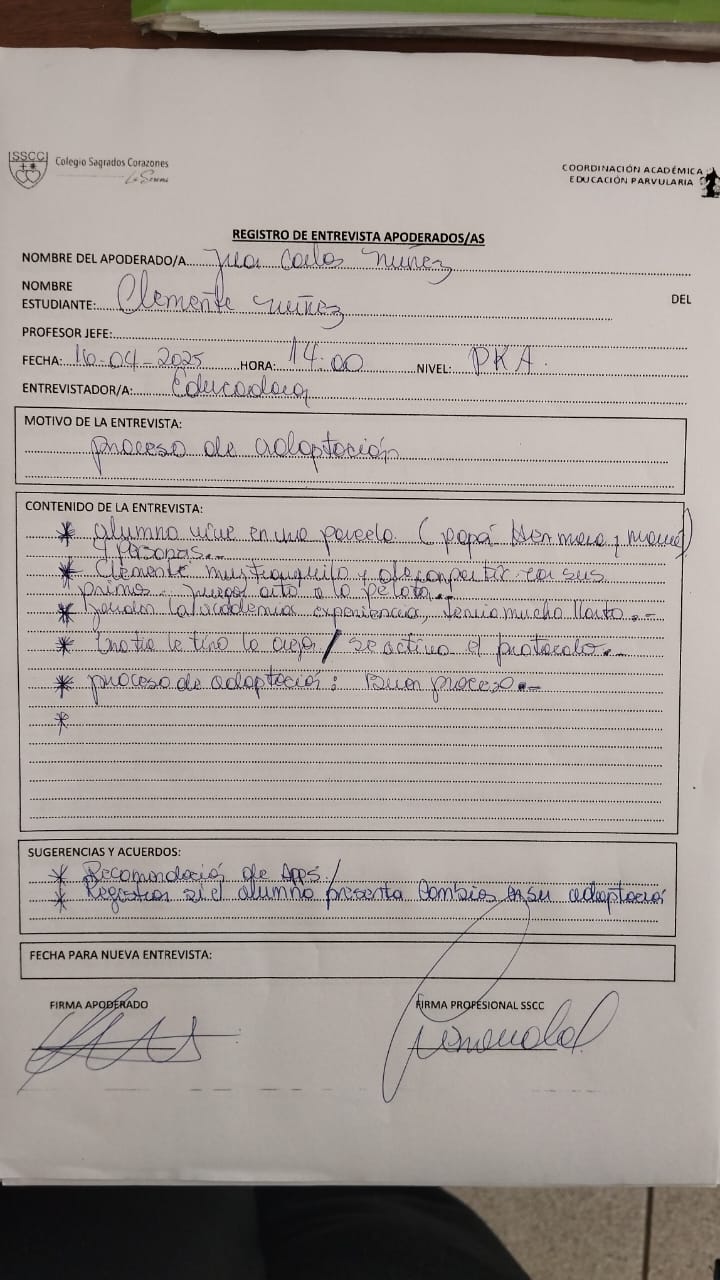 SSCC
Colegio Sagrados Corazones
La Serena
COORDINACIÓN ACADÉMICA
EDUCACIÓN PARVULARIA
REGISTRO DE ENTREVISTA APODERADOS/AS
NOMBRE DEL APODERADO/A Juan Carlos Nuñez
NOMBRE DEL
ESTUDIANTE: Clemente Nuñez
PROFESOR JEFE:
FECHA: 16-04-2025 HORA: 14:00 NIVEL: PKA.
ENTREVISTADOR/A: Educadora
MOTIVO DE LA ENTREVISTA:
proceso de adaptación
CONTENIDO DE LA ENTREVISTA:
* alumno vive en una parcela. (papá hermana y mamá)
4 personas.-
* Clemente muy tranquilo y de compartir con sus
primos. Juega a la pelota.-
* experiencia, mucho llanto.-
* Una tía le tiró la oreja / se activo el protocolo.-
* proceso de adaptación: Buen proceso.-
*
SUGERENCIAS Y ACUERDOS:
* Recomendació de Apps /
* Registrar si el alumno presenta Cambios en su adaptació
FECHA PARA NUEVA ENTREVISTA:
FIRMA APODERADO FIRMA PROFESIONAL SSCC